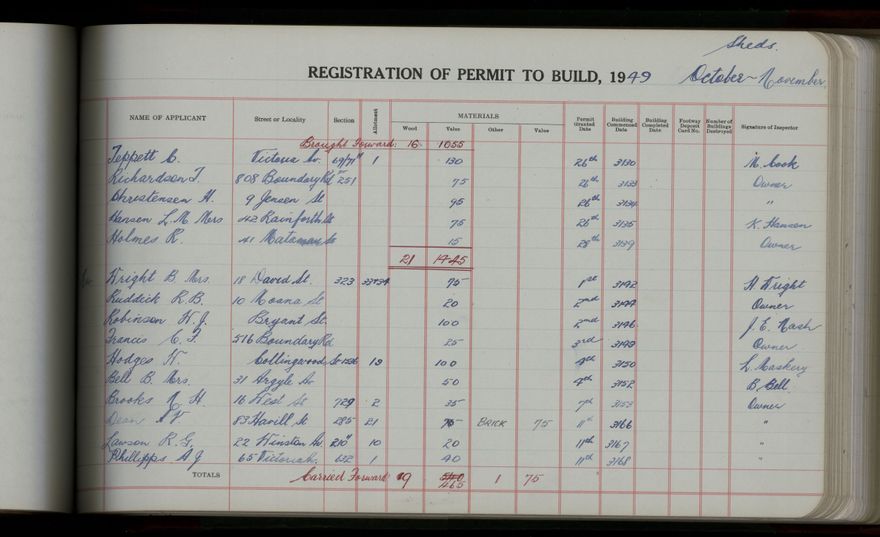 Sheds.
REGISTRATION OF PERMIT TO BUILD, 1949 October - November
NAME OF APPLICANT Street or Locality Section Allotment MATERIALS Wood Value Other Value Permit Granted Date Building Commenced Date Building Completed Date Footway Deposit Card No. Number of Buildings Destroyed Signature of Inspector
Brought Forward: 16 1055
Teppett C. Victoria Av. 1 130 26th 3130 M. Cook
Richardson T. 808 Boundary Rd 251 75 26th 3133 Owner
Christensen H. 9 Jensen St 95 26th 3134 "
Hansen L. M. Mrs 42 Rainforth St 75 26th 3135 K. Hansen
Holmes R. 41 St 15 28th 3139 Owner
21 1445
Wright B. Mrs. 18 David St. 323 33+34 75 1st 3142 H Wright
Ruddick R.B. 10 Moana St 20 2nd 3144 Owner
Robinson H. J. Bryant St. 100 2nd 3146 J. E. Nash
Francis C. F. 516 Boundary Rd 25 3rd 3149 Owner
Hodges K. Collingwood St 13 100 4th 3150 L. Maskery
Bell B. Mrs. 31 Argyle Av 50 4th 3152 B. Bell
Brooks N. H. 16 West St 729 2 35 7th 3153 Owner
Dean A V 83 Havill St 285 21 75 BRICK 75 11th 3166 "
Lawson R. G. 22 Winston Av 210 10 20 11th 3167 "
Phillipps A J 65 Victoria Av. 632 1 40 11th 3168 "
TOTALS Carried Forward 9 465 1 75